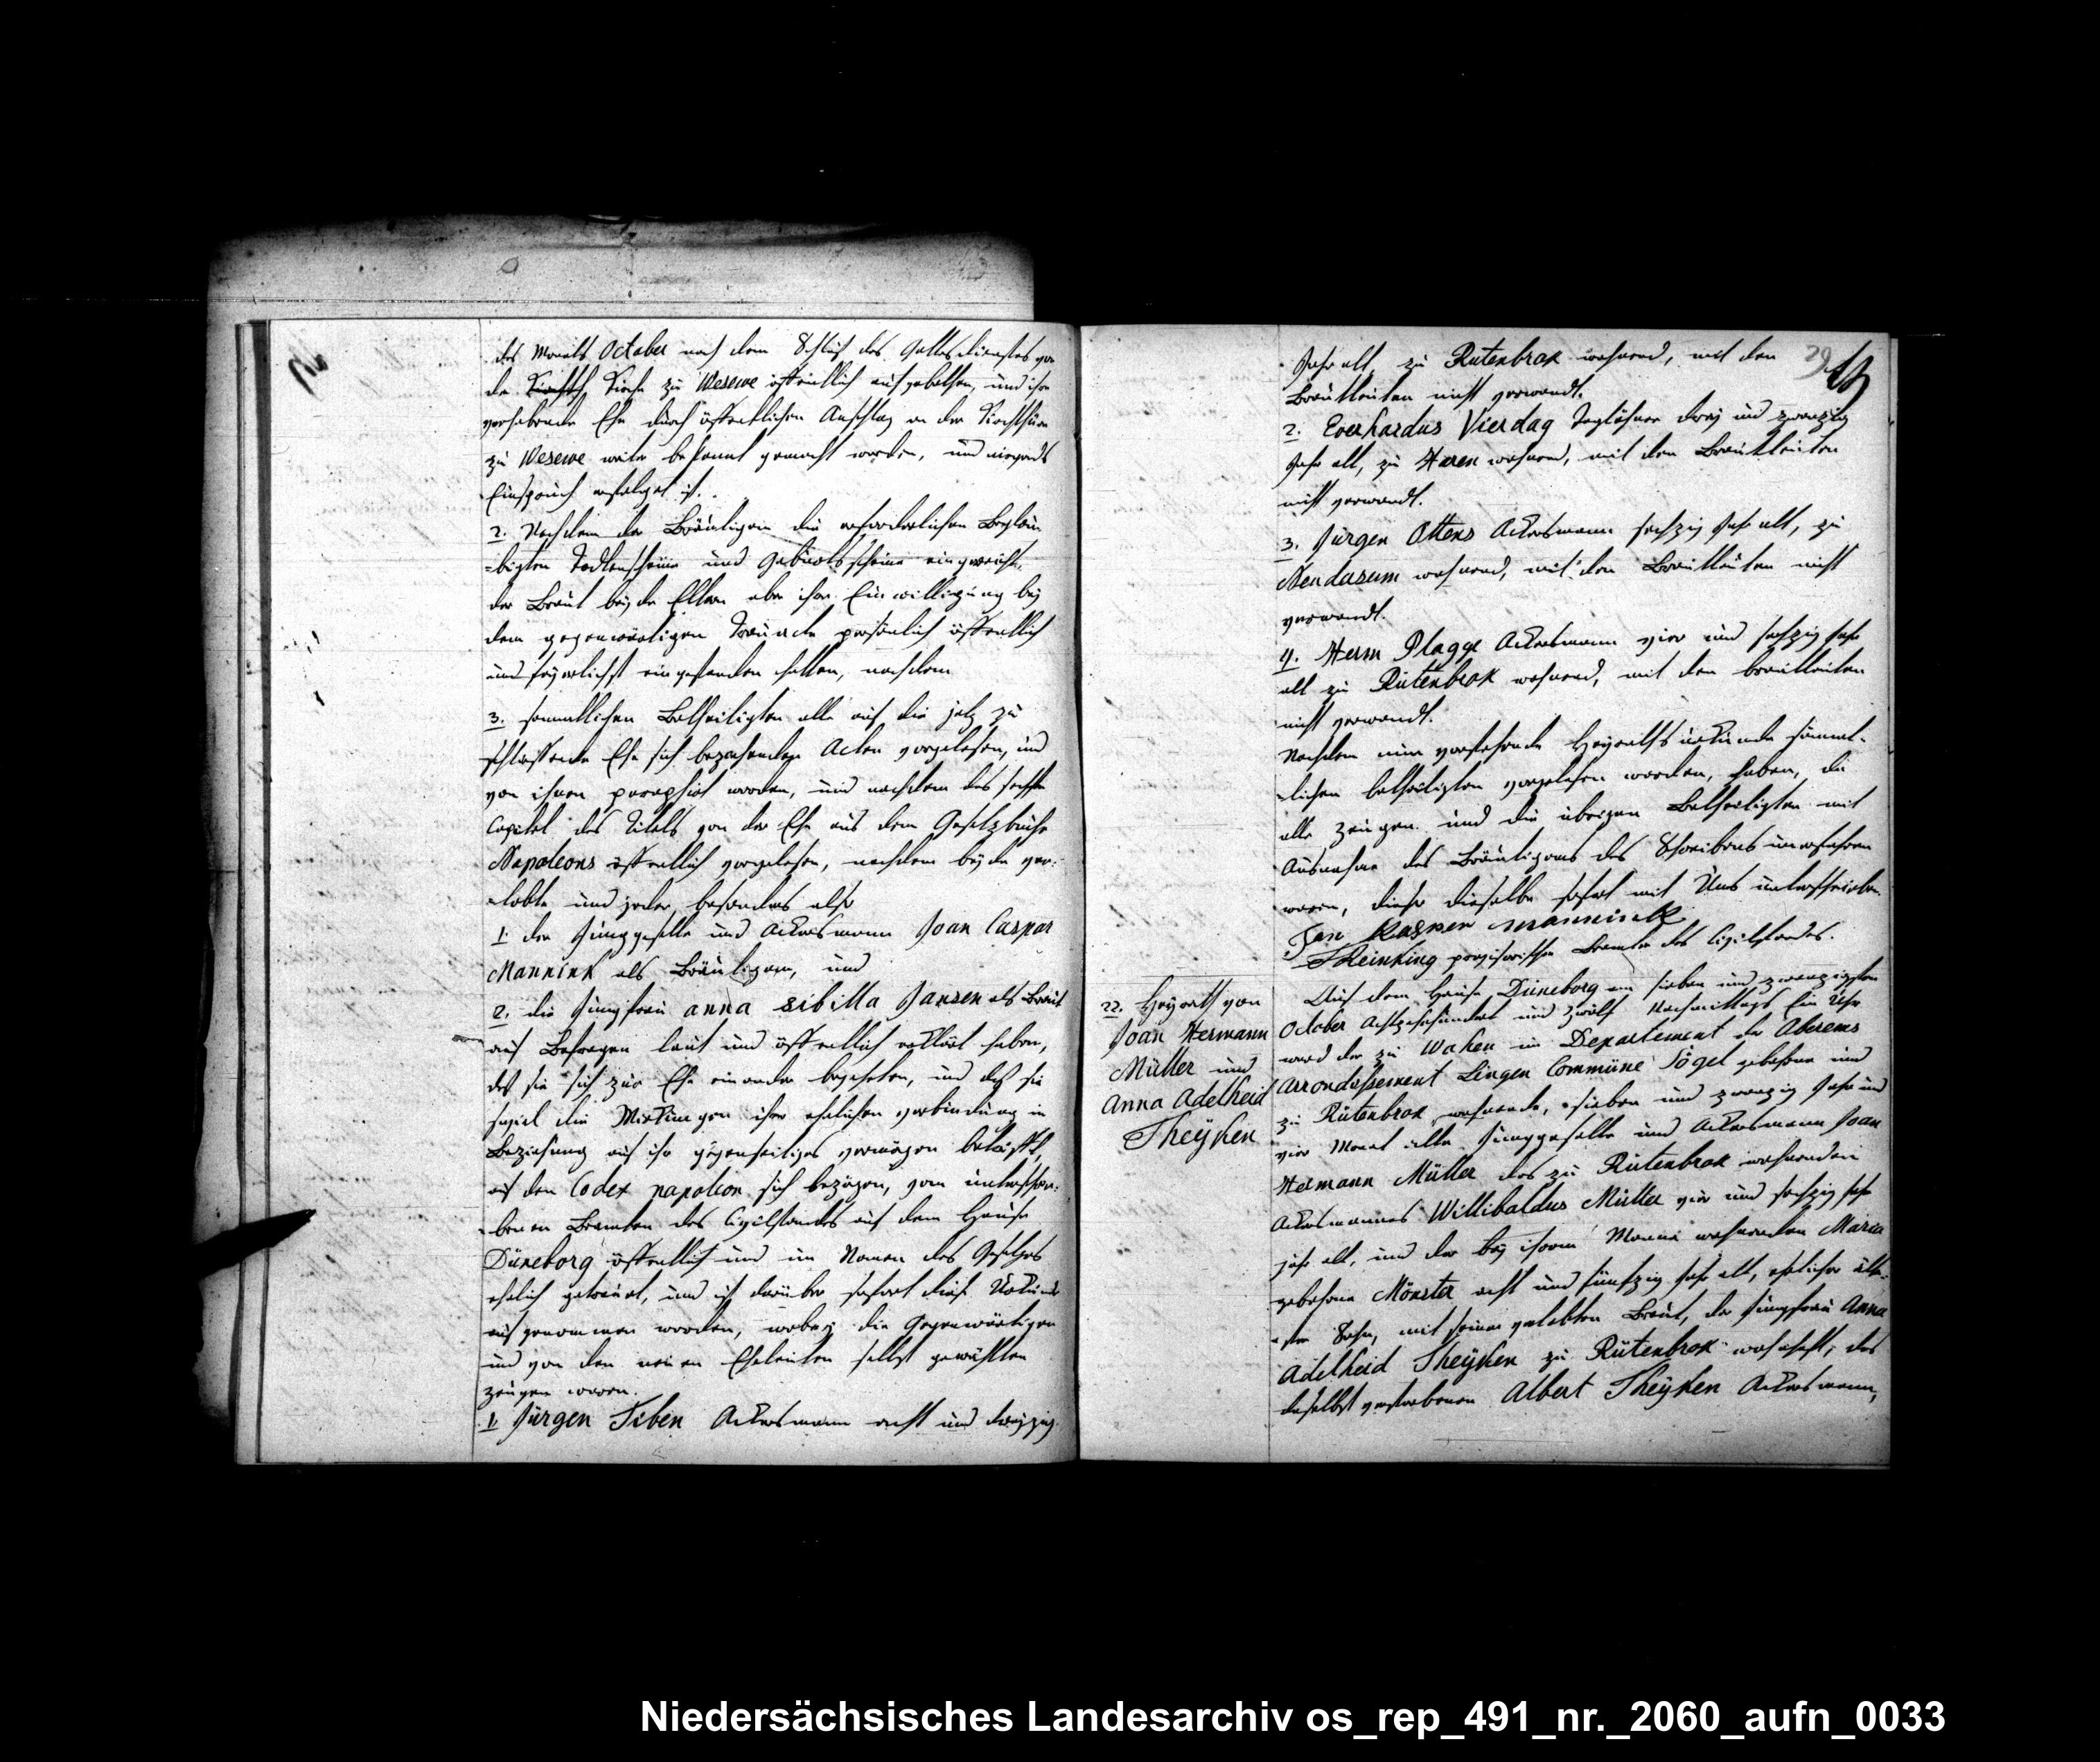 des Monats October nach dem Schluß des Gottesdienstes von
der Kirche zu Wesuwe öffentlich aufgebothen, und ihre
vorhabende Ehe durch öffentlichen Anschlag an der Kirchthüre
zu Wesuwe weiter bekannt gemacht worden, und nirgends
Einspruch erfolget ist.
2. Nachdem der Bräutigam die erforderlichen Beglau-
-bigten Todtenscheine und Geburtsscheine eingereicht,
der Braut beyde Eltern aber ihre Einwilligung bey
dem gegenwärtigen Trauacte persönlich öffentlich
und feyerlichst eingestanden hatten, nachdem
3. sammtlichen Betheiligten alle auf die jetz zu
schliessende Ehe sich beziehenden Acten vorgelesen, und
von ihnen paraphirt worden, und nachdem das sechste
Capitel des Titels von der Ehe aus dem Gesetzbuche
Napoleons öffentlich vorgelesen, nachdem beyde ver-
-lobte und jeder besonders also
1. der Junggeselle und Ackersmann Joan Caspar
Mannink als Bräutigam, und
2. die Jungfrau anna sibilla Jansen als Braut
auf Befragen laut und öffentlich erklärt haben,
daß sie sich zur Ehe einander begehrten, und daß sie
soviel die Wirkungen ihrer ehelichen verbindung in
Beziehung auf ihr gegenseitiges vermögen betrifft,
auf den Codex napoleon sich bezögen, vom unterschrie-
-benen Beamten des Civilstandes auf dem Hause
Düneborg öffentlich und im Namen des Gesetzes
ehelich getrauet, und ist darüber sofort diese Urkunde
aufgenommen worden, wobey die Gegenwärtigen
und von den neuen Eheleuten selbst gewählten
zeugen waren.
1. Jürgen Tiben Ackersmann acht und dreyzig
Jahr alt, zu Rütenbrok wohnend, mit den
Brautleuten nicht verwandt.
2. Everhardus Vierdag Taglöhner drey und zwanzig
Jahr alt, zu Haren wohnend, mit den Brautleuten
nicht verwandt.
3. Jürgen Ottens Ackersmann sechzig Jahr alt, zu
Neudasum wohnend, mit den Brautleuten nicht
verwandt.
4. Herm Plagge Ackersmann vier und sechzig Jahr
alt zu Rütenbrok wohnend, mit den brautleuten
nicht verwandt.
Nachdem nun vorstehende Heyraths urkunde sämmt-
-lichen betheiligten vorgelesen worden, haben, da
alle zeugen und die übrigen Betheiligten mit
Ausnahme des Bräutigams des Schreibens unerfahren
waren, diese dieselbe sofort mit Uns unterschrieben.
Jan Kasper mannink
Reinking provisorischer Beamter des Civilstandes.
22. Heyrath von
Joan Hermann
Müller und
Anna Adelheid
Theyken
Auf dem Hause Düneborg am sieben und zwanzigsten
October Achtzehnhundert und zwölf Nachmittags Ein Uhr
ward der zu Wahen im Departement der Oberems
Arrondissement Lingen Commüne Sögel gebohrne und
zu Rütenbrok wohnende, sieben und zwanzig Jahr und
vier Monat alte Junggeselle und Ackersmann Joan
Hermann Müller des zu Rütenbrok wohnenden
Ackersmannes Willibaldus Müller vier und sechzig Jahr
jahr alt, und der bey ihrem Manne wohnenden Maria
gebohrne Mönster acht und fünfzig Jahr alt, ehelicher älte-
-ster Sohn, mit seiner verlobten Braut, der Jungfrau Anna
Adelheid Theyken zu Rütenbrok wohnhaft, des
daselbst verstorbenen Albert Theyken Ackersmann,
Niedersächsisches Landesarchiv os_rep_491_nr._2060_aufn_0033